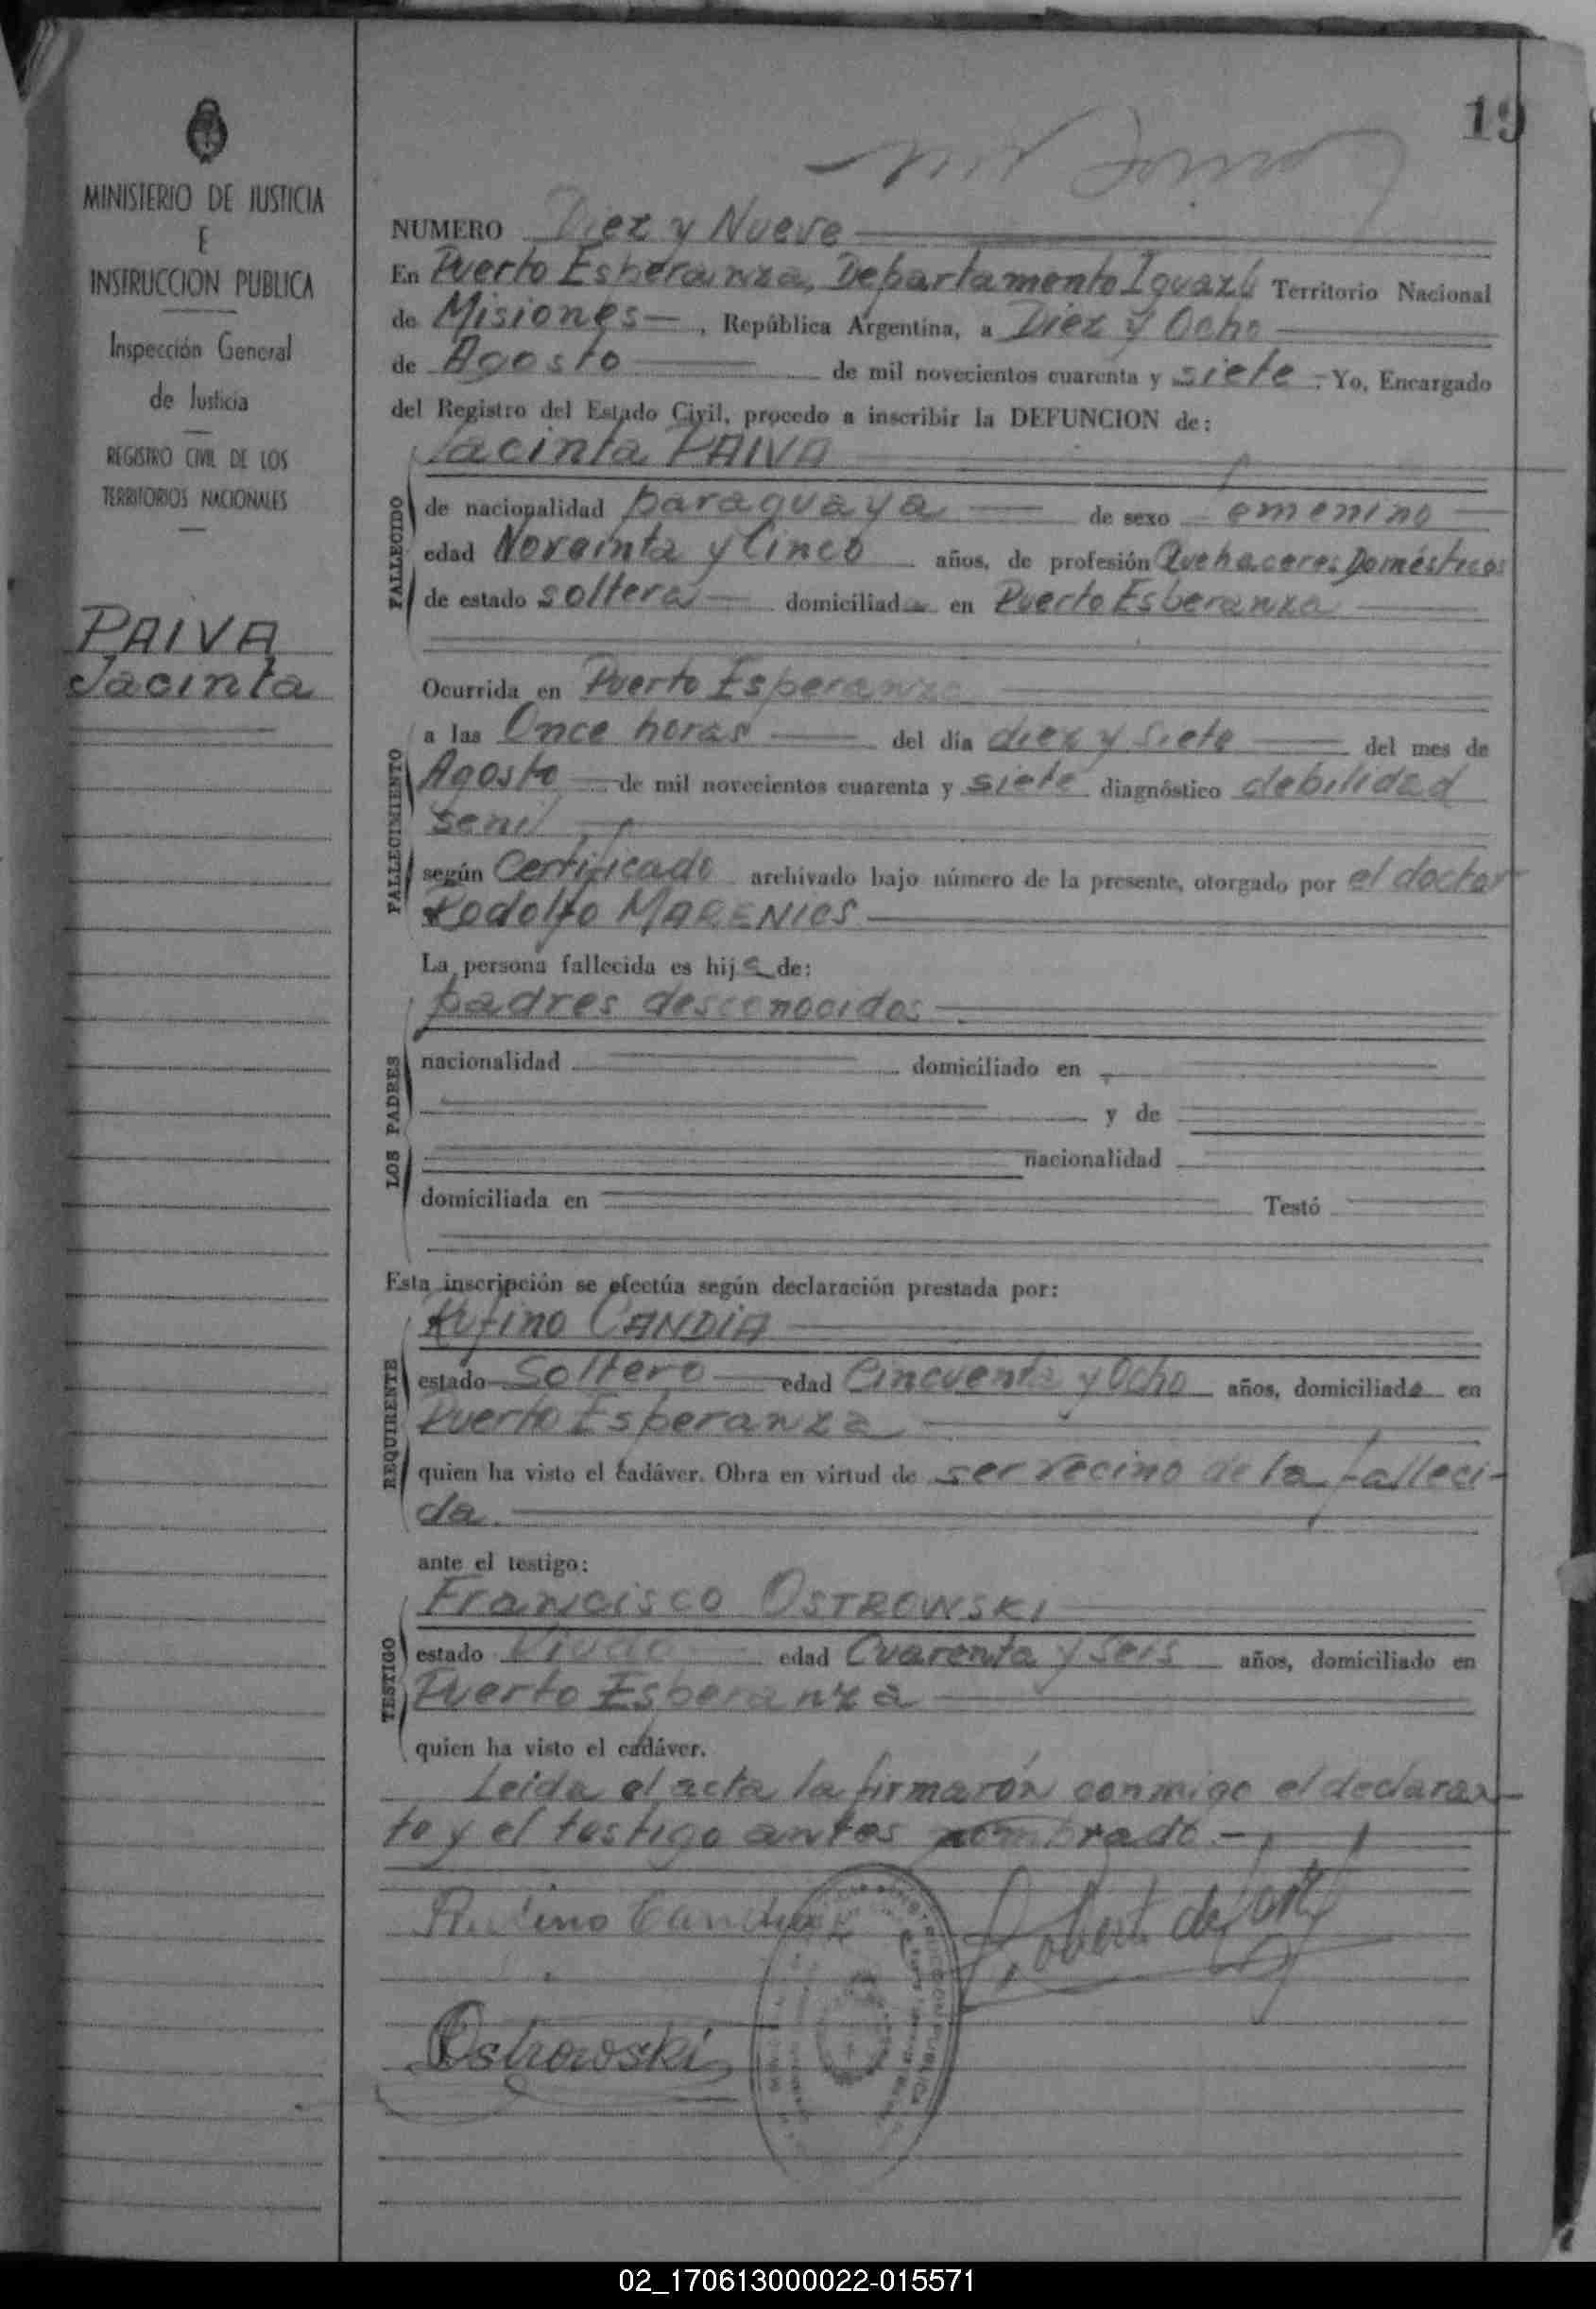 19
MINISTERIO DE JUSTICIA
E
INSTRUCCION PUBLICA
Inspección General
de Justicia
REGISTRO CIVIL DE LOS
TERRITORIOS NACIONALES
PAIVA
Jacinta
NUMERO Diez y Nueve
En Puerto Esperanza, Departamento Iguazú Territorio Nacional
de Misiones, República Argentina, a Diez y Ocho
de Agosto de mil novecientos cuarenta y siete. Yo, Encargado
del Registro del Estado Civil, procedo a inscribir la DEFUNCION de:
Jacinta PAIVA
FALLECIDO
de nacionalidad paraguaya de sexo femenino
edad Noveinta y Cinco años, de profesión Quehaceres Domésticos
de estado soltera domiciliada en Puerto Esperanza
FALLECIMIENTO
Ocurrida en Puerto Esperanza
a las Once horas del día diez y siete del mes de
Agosto de mil novecientos cuarenta y siete diagnóstico debilidad
senil
según Certificado archivado bajo número de la presente, otorgado por el doctor
Rodolfo MARENICS
La persona fallecida es hija de:
LOS PADRES
padres desconocidos
nacionalidad domiciliado en
y de
nacionalidad
domiciliada en Testó
Esta inscripción se efectúa según declaración prestada por:
REQUIRENTE
Rufino CANDIA
estado Soltero edad Cincuenta y Ocho años, domiciliado en
Puerto Esperanza
quien ha visto el cadáver. Obra en virtud de ser vecino de la falleci-
da.
ante el testigo:
TESTIGO
Francisco OSTROWSKI
estado Viudo edad Cuarenta y Seis años, domiciliado en
Puerto Esperanza
quien ha visto el cadáver.
Leida el acta la firmarón conmigo el declaran-
te y el testigo antes nombrado.-
Rufino Candia
Ostrowski
02_170613000022-015571